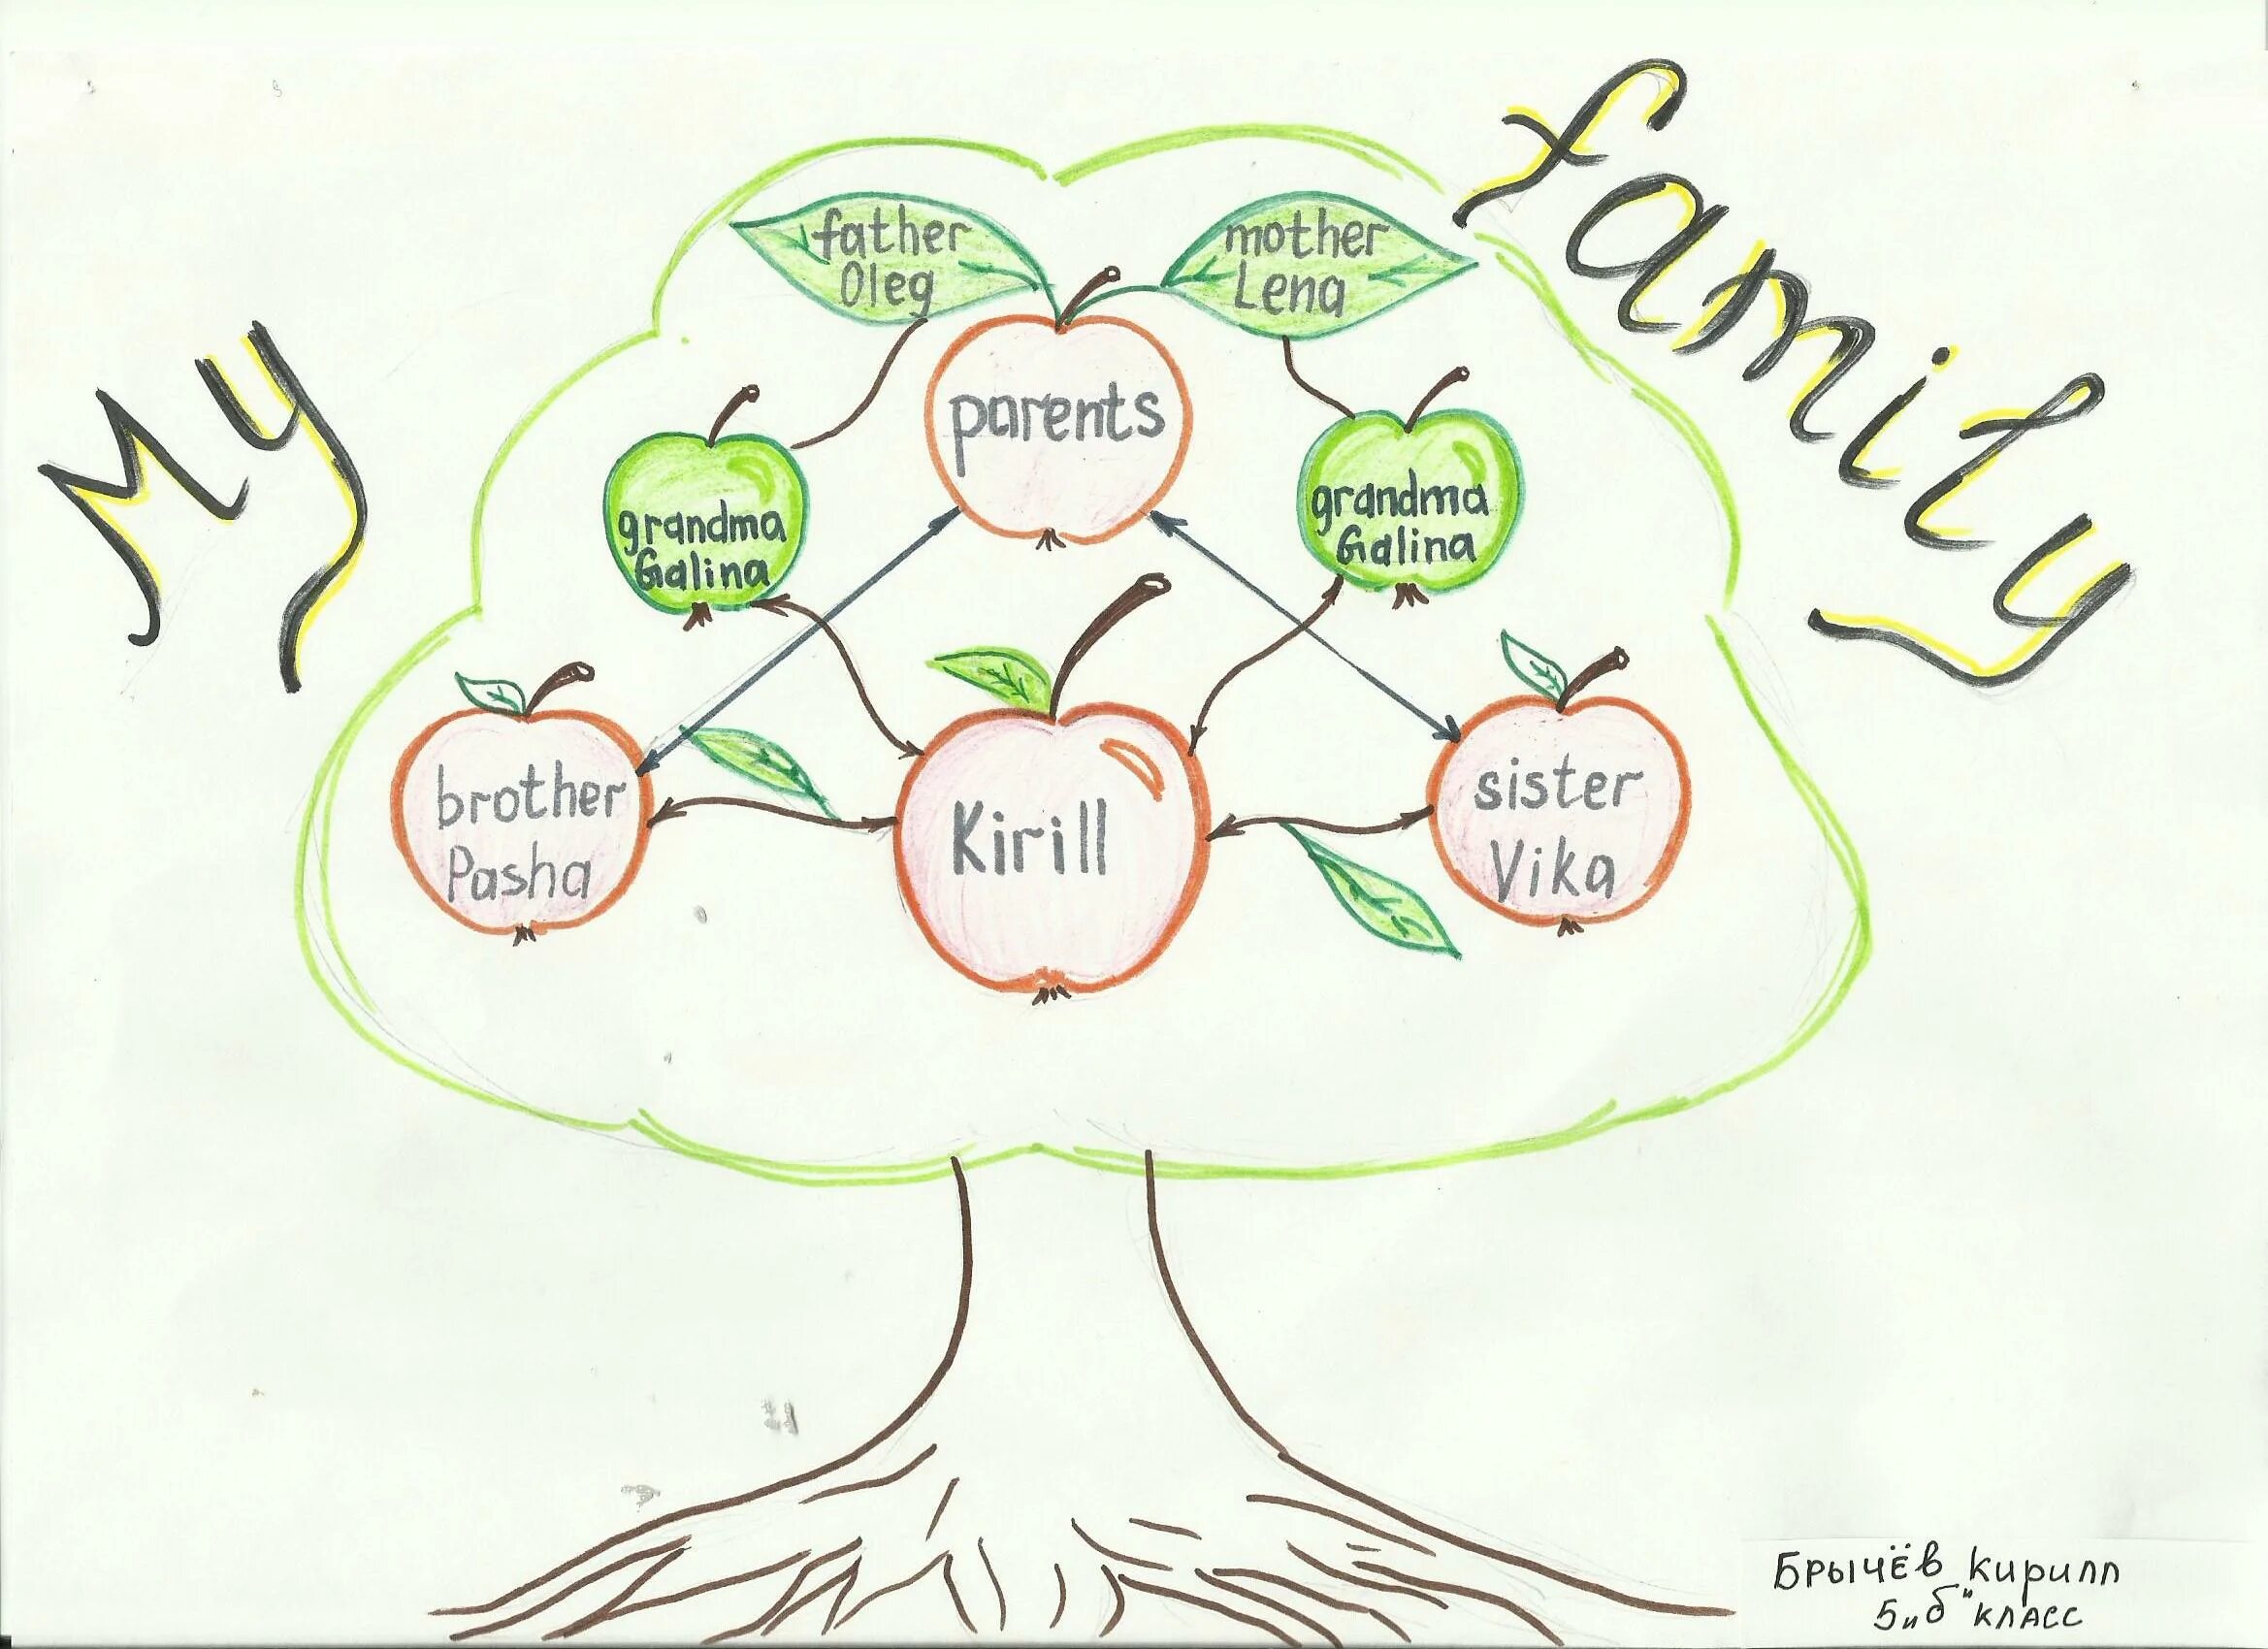 My family
father
Oleg
mother
Lena
parents
grandma
Galina
grandma
Galina
brother
Pasha
Kirill
sister
Vika
Брычёв Кирилл
5 "б" класс